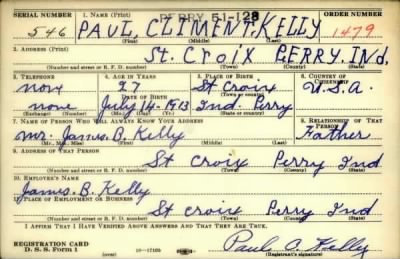 SERIAL NUMBER 1. NAME (Print) PERRY 51-128 ORDER NUMBER
546 PAUL, CLIMENT, KELLY 1479
(First) (Middle) (Last)
2. ADDRESS (Print)
St. CROIX PERRY, Ind.
(Number and street or R. F. D. number) (Town) (County) (State)
3. TELEPHONE 4. AGE IN YEARS 5. PLACE OF BIRTH 6. COUNTRY OF CITIZENSHIP
non 27 St Croix U.S.A.
DATE OF BIRTH (Town or county)
none July 14-1913 Ind. Perry
(Exchange) (Number) (Mo.) (Day) (Yr.) (State or country)
7. NAME OF PERSON WHO WILL ALWAYS KNOW YOUR ADDRESS 8. RELATIONSHIP OF THAT PERSON
Mr. James. B. Kelly Father
(Mr., Mrs., Miss) (First) (Middle) (Last)
9. ADDRESS OF THAT PERSON
St Croix Perry Ind
(Number and street or R. F. D. number) (Town) (County) (State)
10. EMPLOYER'S NAME
James. B. Kelly
11. PLACE OF EMPLOYMENT OR BUSINESS
St Croix Perry Ind
(Number and street or R. F. D. number) (Town) (County) (State)
I AFFIRM THAT I HAVE VERIFIED ABOVE ANSWERS AND THAT THEY ARE TRUE.
REGISTRATION CARD
D. S. S. Form 1 (over) 16-17105 Paul C. Kelly
(Registrant's signature)